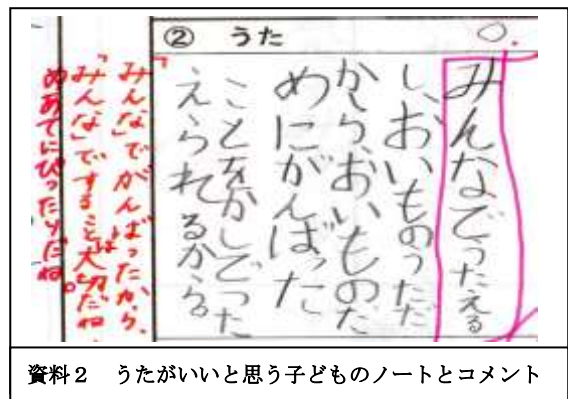 ② うた
みんなでうたえる
し、おいものうただ
から、おいものた
めにがんばった
ことをかしでつた
えられるから。
「みんなでがんばったから、
「みんな」ですることは大切だね。
めあてにぴったりだね。
資料2 うたがいいと思う子どものノートとコメント